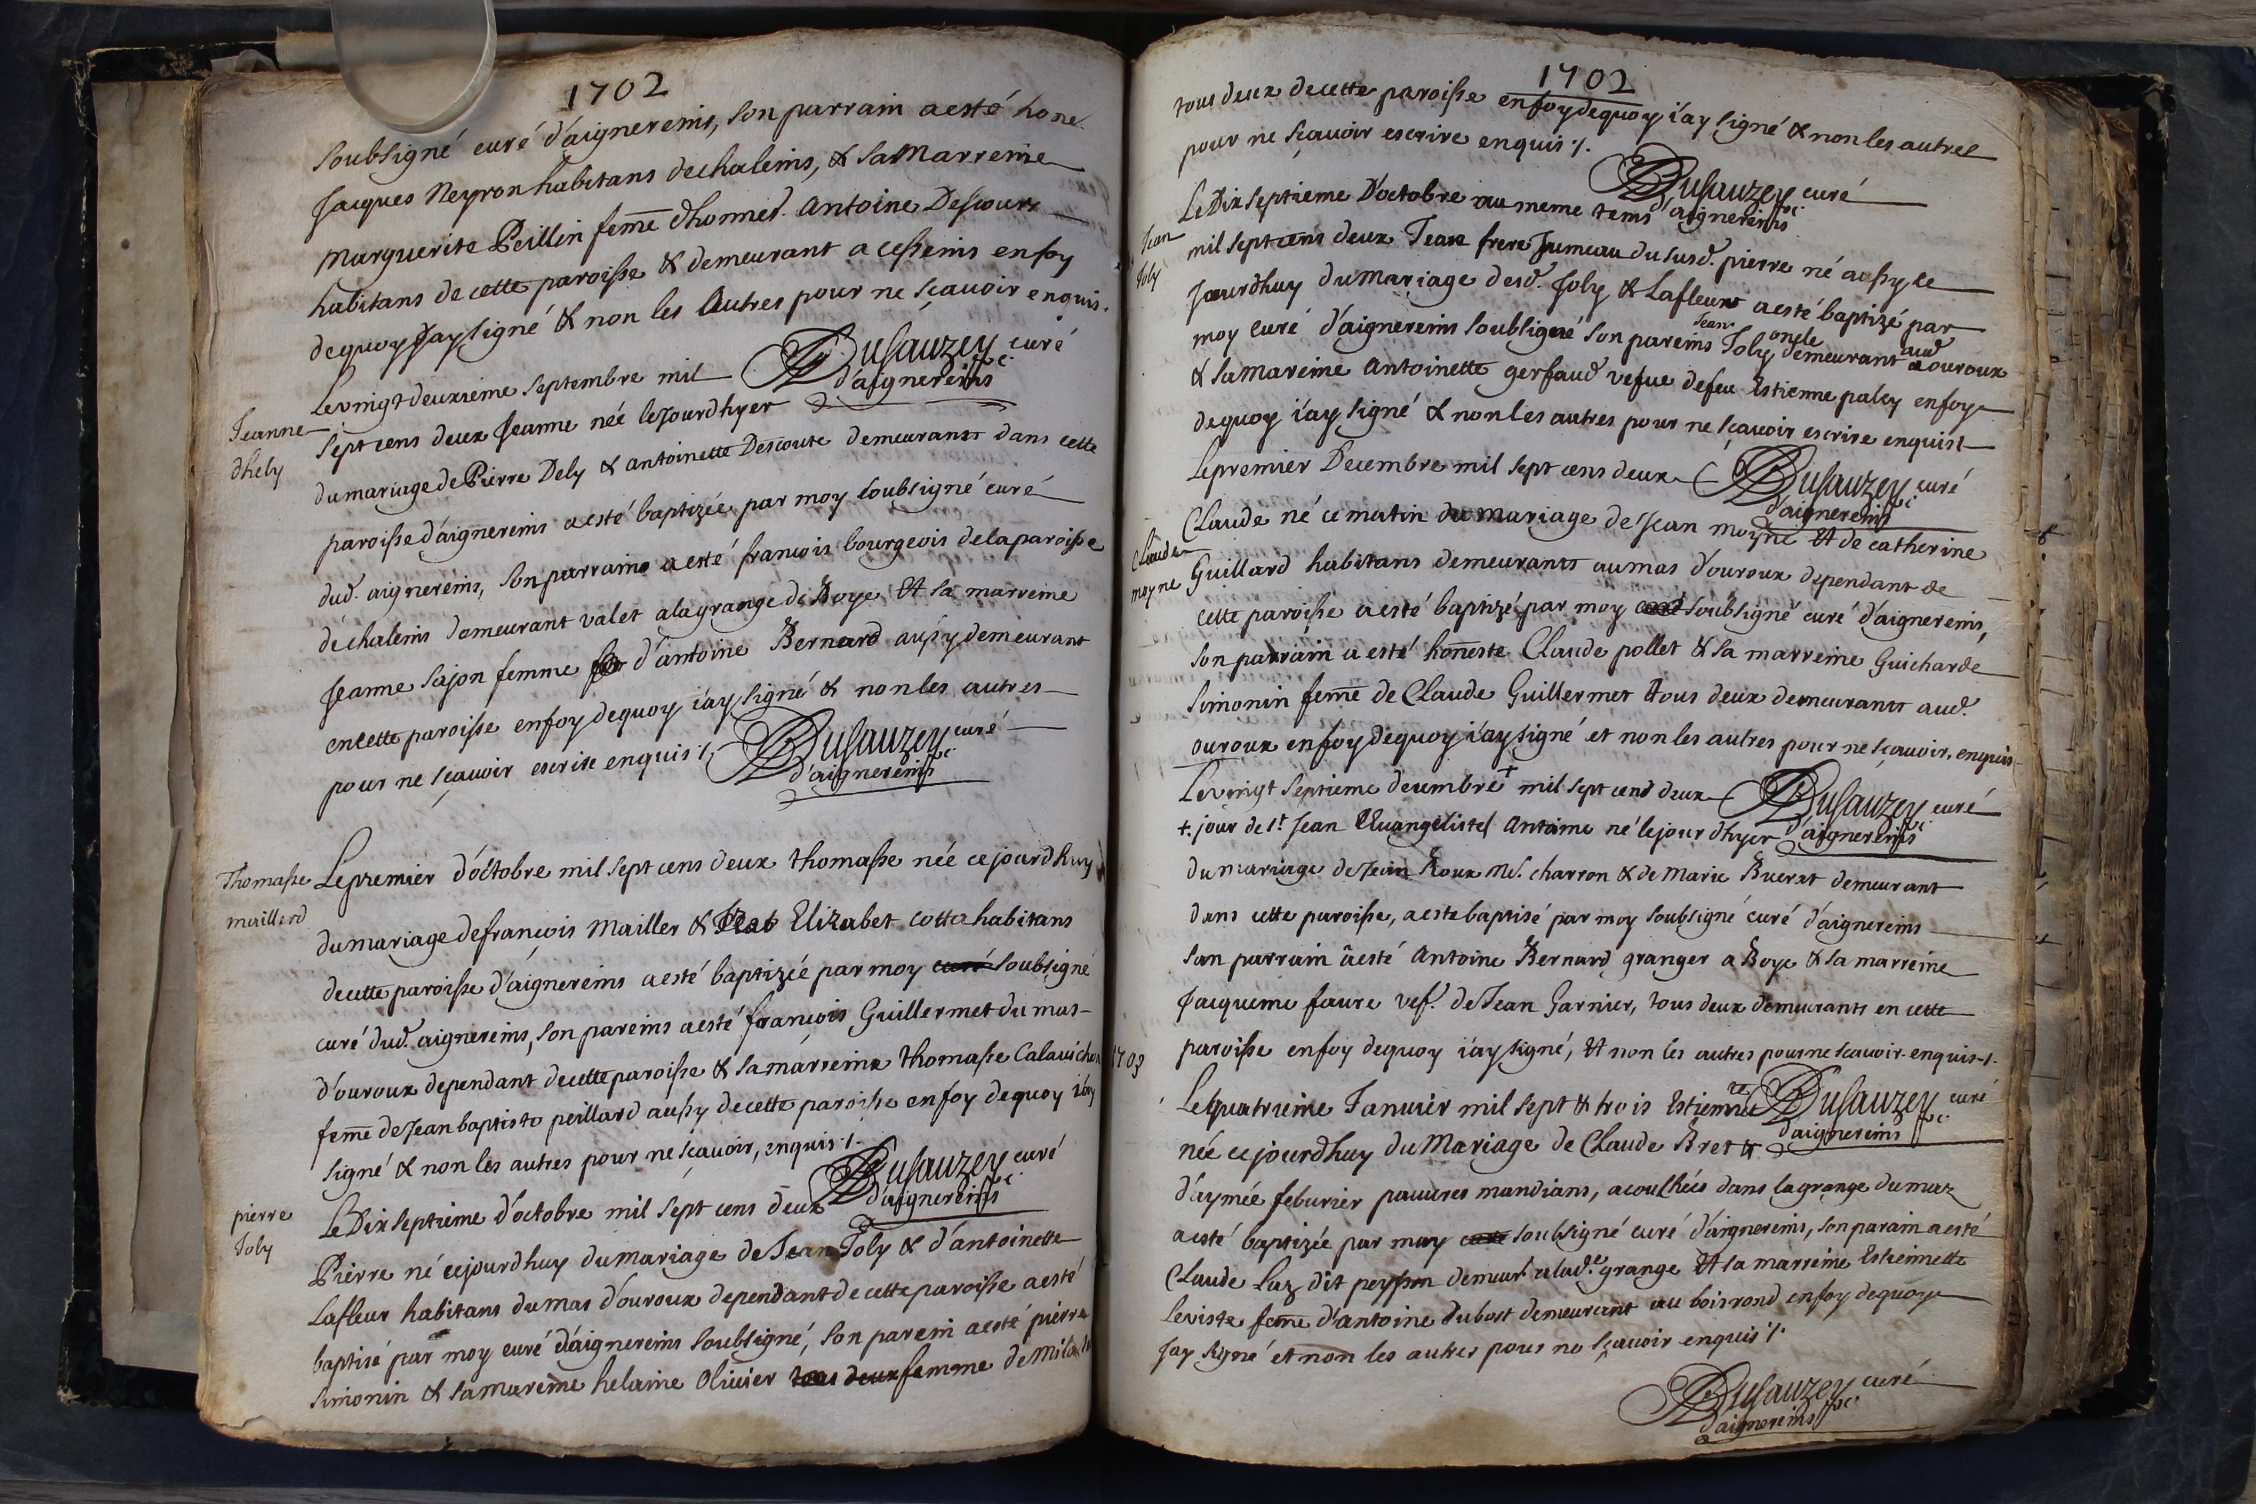 1702
soubsigné curé d'aignereins, son parrain a esté hone.
Jacques Neyron habitans de chaleins, & sa Marreine
marguerite Peillin feme dhonned. Antoine Descours
habitans de cette paroisse & demeurant a cesseins en foy
dequoy Jay signé & non les Autres pour ne sçauoir enquis.
Dusauzey curé
d'aignereins
Jeanne
dhely
Le vingt deuxieme septembre mil
sept cens deux Jeanne née le Jourdhyer
du mariage de Pierre Dely & antoinette Descoute demeurants dans cette
paroisse d'aignereins a esté baptizée par moy soubsigné curé
dud. aignereins, son parrain a esté francois bourgeois de la paroisse
de chaleins demeurant valet a la grange de Boye Et sa marreine
Jeanne sajon femme d'antoine Bernard aussy demeurant
en cette paroisse en foy dequoy i'ay signé & non les autres
pour ne sçauoir escrire enquis ./.
Dusauzey curé
d'aignereins
Thomasse
maillerd
Le premier d'octobre mil sept cens deux thomasse née ce jourdhuy
du mariage de francois Mailler & Elizabet cotta habitans
de cette paroisse d'aignereins a esté baptizée par moy curé soubsigné
curé dud. aignereins, son pareins a esté francois Guillermet du mas
d'ouroux dependant de cette paroisse & sa marreine thomasse Calauichon
feme de Jean baptiste peillard aussy de cette paroisse en foy dequoy i'ay
signé & non les autres pour ne sçauoir, enquis ./.
Dusauzey curé
d'aignereins
pierre
Joly
Le Dix septieme d'octobre mil sept cens deux
Pierre né cejourdhuy du mariage de Jean Joly & d'antoinette
Lafleur habitans du mas d'ouroux dependant de cette paroisse a esté
baptisé par moy curé d'aignereins soubsigné, son parein a esté pierre
simonin & sa mareine helaine Oliuier tous deux femme de
1702
tous deux de cette paroisse en foy dequoy i'ay signé & non les autres
pour ne sçauoir escrire enquis ./.
Dusauzey curé
d'aignereins
Jean
Joly
Le Dix septieme D'octobre au meme tems
mil sept cens deux Jean frere Jumeau du susd. pierre né aussy ce
Jourdhuy du mariage desd. Joly & Lafleur a esté baptizé par
moy curé d'aignereins soubsigné son pareins Jean Joly oncle demeurant aud ouroux
& sa mareine Antoinette gerfaud vefue de feu Estienne paley en foy
dequoy i'ay signé & non les autres pour ne sçauoir escrire enquis
Dusauzey curé
d'aignereins
Claude
moyne
Le premier Decembre mil sept cens deux
Claude né ce matin du mariage de Jean moyne Et de catherine
Guillard habitans demeurants au mas d'ouroux dependant de
cette paroisse a esté baptizé par moy curé soubsigné curé d'aignereins,
son parrain a esté honeste Claude pollet & sa marreine Guicharde
simonin feme de Claude Guillermet tous deux demeurants aud.
ouroux en foy dequoy i'ay signé et non les autres pour ne sçauoir, enquis
Dusauzey curé
d'aignereins
Le vingt septieme decembre + mil sept cens deux
+. jour de st Jean Euangeliste Antoine né le jour dhyer
du mariage de Jean Roux me. charron & de Marie Buerat demeurant
dans cette paroisse, a este baptisé par moy soubsigné curé d'aignereins
son parrain a esté Antoine Bernard granger a Boye & sa marreine
Jacqueme faure vef. de Jean Garnier, tous deux demeurants en cette
paroisse en foy dequoy i'ay signé, Et non les autres pour ne scauoir. enquis ./.
Dusauzey curé
d'aignereins
1703
Le quatrieme Januier mil sept & trois Estiennette
née ce jourdhuy du Mariage de Claude Bret &
d'aymée feburier pauures mandians, acouchée dans la grange du maz
a esté baptizée par moy curé soubsigné curé d'aignereins, son parain a esté
Claude Laz dit peysson demeurt a lad.e grange Et sa marreine Estiennette
Leviste feme d'antoine dubost demeurant au bois rond en foy dequoy
Jay signé et non les autres pour ne sçauoir enquis ./.
Dusauzey curé
d'aignereins